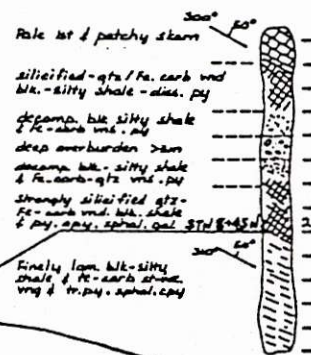 300° 50°
Pale lst & patchy skarn
silicified-qtz/Fe. carb vnd
blk.-silty shale-diss. py
decomp. blk silty shale
& Fe-carb vns. py
deep overburden >2m
decomp blk-silty shale
& Fe.carb-qtz vns. py
strongly silicified qtz-
Fe-carb vnd. blk. shale
& py. apy. sphal. gal STN 8+45N
310° 50°
Finely lam. blk-silty
shale & fe-carb
vng & tr.py. sphal. cpy